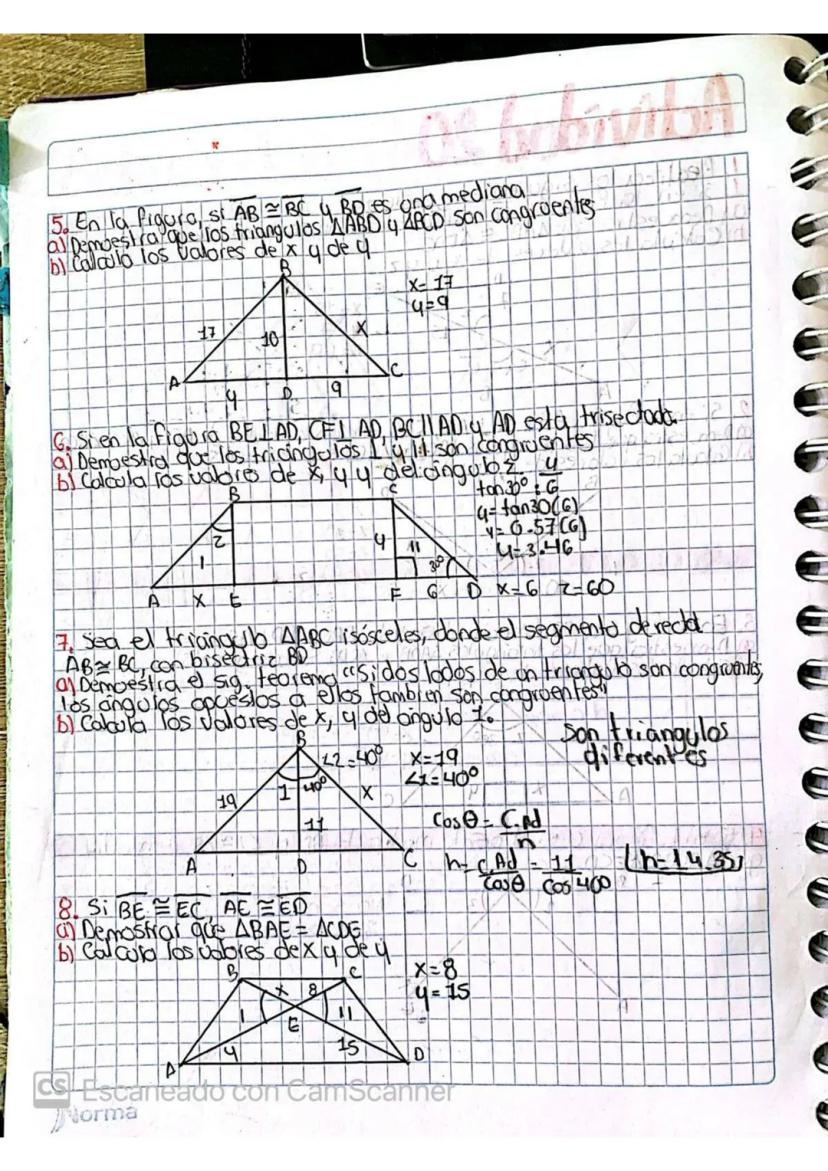 5. En la figura, si AB ≅ BC y BD es una mediana
a) Demuestra que los triangulos ΔABD y ΔBCD son congruentes
b) Calcula los valores de x y de y
B
x= 17
y=9
17
10
x
A
C
y
D
9
6. Si en la figura BE⊥AD, CF⊥ AD, BC||AD y AD esta trisectado.
a) Demuestra que los triangulos 1 y 11 son congruentes
b) Calcula los valores de x, y y del angulo z
tan30° = y/6
y= tan30(6)
y= 0.57(6)
y=3.46
B
C
z
1
y
11
30°
A
x
E
F
6
D
x=6 z=60
7. Sea el triangulo ΔABC isósceles, donde el segmento de recta
AB≅ BC, con bisectriz BD
a) Demuestra el sig. teorema "Si dos lados de un triangulo son congruentes,
los angulos opuestos a ellos tambien son congruentes"
b) Calcula los valores de x, y del angulo 1.
son triangulos
diferentes
B
∠2=40°
x=19
∠1=40°
19
1
40°
x
11
A
D
C
Cosθ = C.Ad/h
h= C.Ad/Cosθ = 11/Cos40° h=14.35
8. Si BE ≅ EC AE ≅ ED
a) Demostrar que ΔBAE = ΔCDE
b) Calcula los valores de x y de y
B
C
x=8
y=15
x
8
1
11
E
y
15
A
D
CS Escaneado con CamScanner
Norma